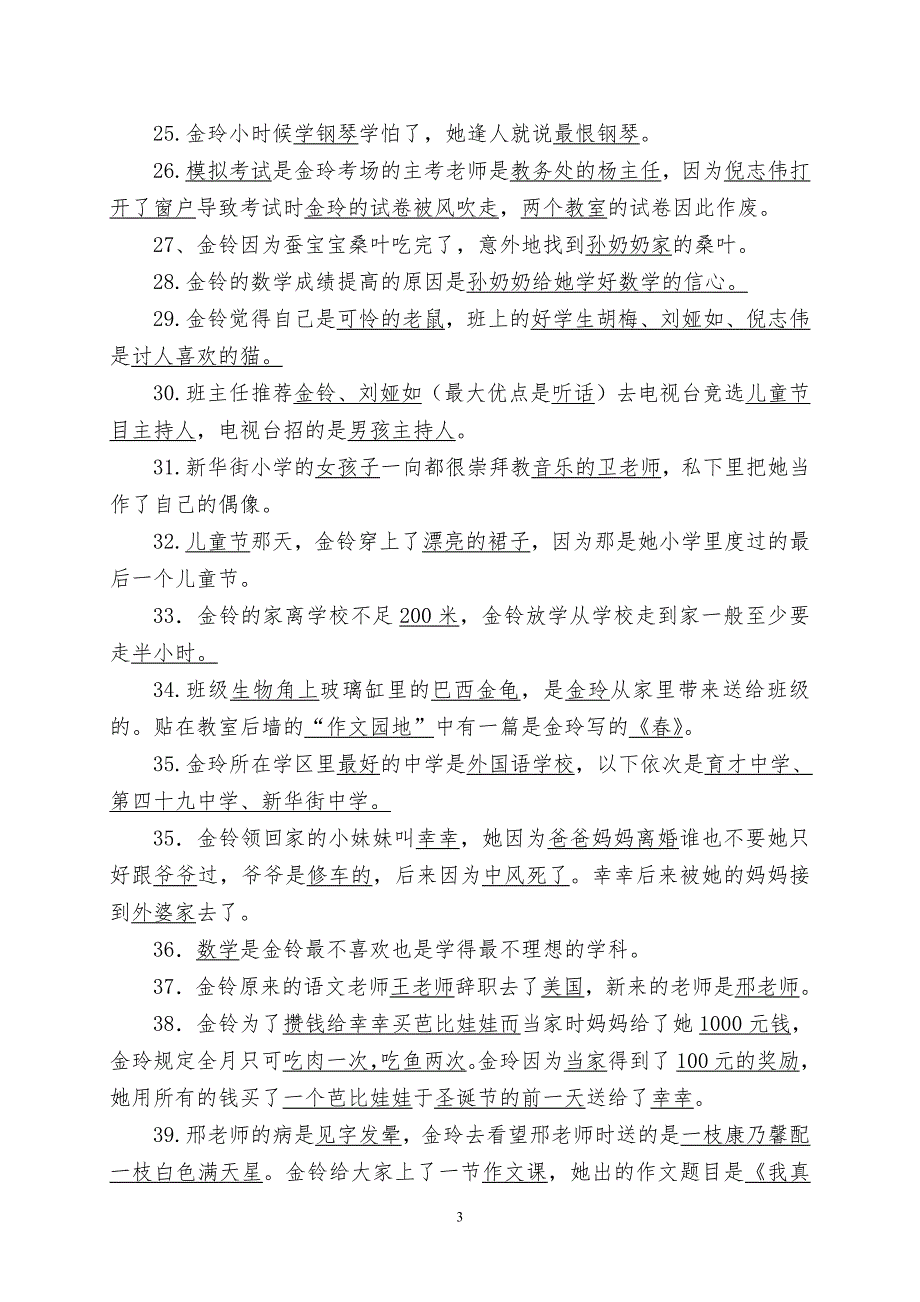 25.金玲小时候学钢琴学怕了，她逢人就说最恨钢琴。
26.模拟考试是金玲考场的主考老师是教务处的杨主任，因为倪志伟打
开了窗户导致考试时金玲的试卷被风吹走，两个教室的试卷因此作废。
27、金铃因为蚕宝宝桑叶吃完了，意外地找到孙奶奶家的桑叶。
28.金铃的数学成绩提高的原因是孙奶奶给她学好数学的信心。
29.金铃觉得自己是可怜的老鼠，班上的好学生胡梅、刘娅如、倪志伟
是讨人喜欢的猫。
30.班主任推荐金铃、刘娅如（最大优点是听话）去电视台竞选儿童节
目主持人，电视台招的是男孩主持人。
31.新华街小学的女孩子一向都很崇拜教音乐的卫老师，私下里把她当
作了自己的偶像。
32.儿童节那天，金铃穿上了漂亮的裙子，因为那是她小学里度过的最
后一个儿童节。
33．金铃的家离学校不足 200 米，金铃放学从学校走到家一般至少要
走半小时。
34.班级生物角上玻璃缸里的巴西金龟，是金玲从家里带来送给班级
的。贴在教室后墙的“作文园地”中有一篇是金玲写的《春》。
35.金玲所在学区里最好的中学是外国语学校，以下依次是育才中学、
第四十九中学、新华街中学。
35．金铃领回家的小妹妹叫幸幸，她因为爸爸妈妈离婚谁也不要她只
好跟爷爷过，爷爷是修车的，后来因为中风死了。幸幸后来被她的妈妈接
到外婆家去了。
36．数学是金铃最不喜欢也是学得最不理想的学科。
37．金铃原来的语文老师王老师辞职去了美国，新来的老师是邢老师。
38．金铃为了攒钱给幸幸买芭比娃娃而当家时妈妈给了她 1000 元钱，
金玲规定全月只可吃肉一次，吃鱼两次。金玲因为当家得到了 100 元的奖励，
她用所有的钱买了一个芭比娃娃于圣诞节的前一天送给了幸幸。
39.邢老师的病是见字发晕，金玲去看望邢老师时送的是一枝康乃馨配
一枝白色满天星。金铃给大家上了一节作文课，她出的作文题目是《我真
3